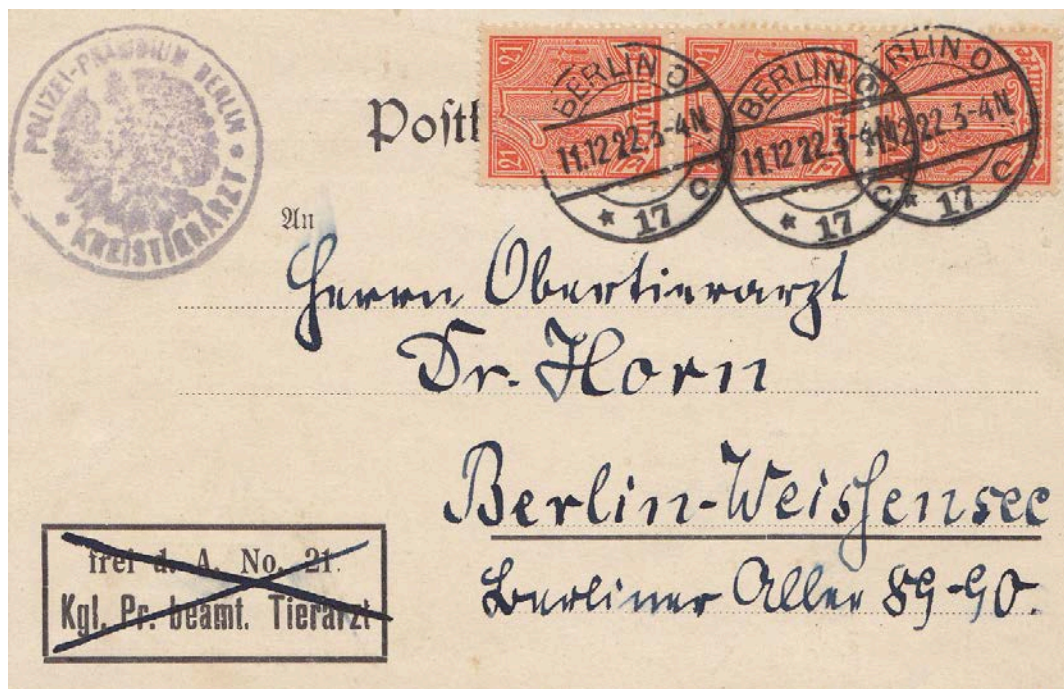 POLIZEI-PRÄSIDIUM BERLIN
* KREISTIERARZT *
Postk
21 21
BERLIN O
11.12.22.3-4N.
* 17 C
BERLIN O
11.12.22.3-4N.
* 17 C
BERLIN O
11.12.22.3-4N.
* 17 C
An
Herrn Obertierarzt
Dr. Horn
Berlin-Weißensee
Berliner Allee 89-90.
frei d. A. No. 21.
Kgl. Pr. beamt. Tierarzt